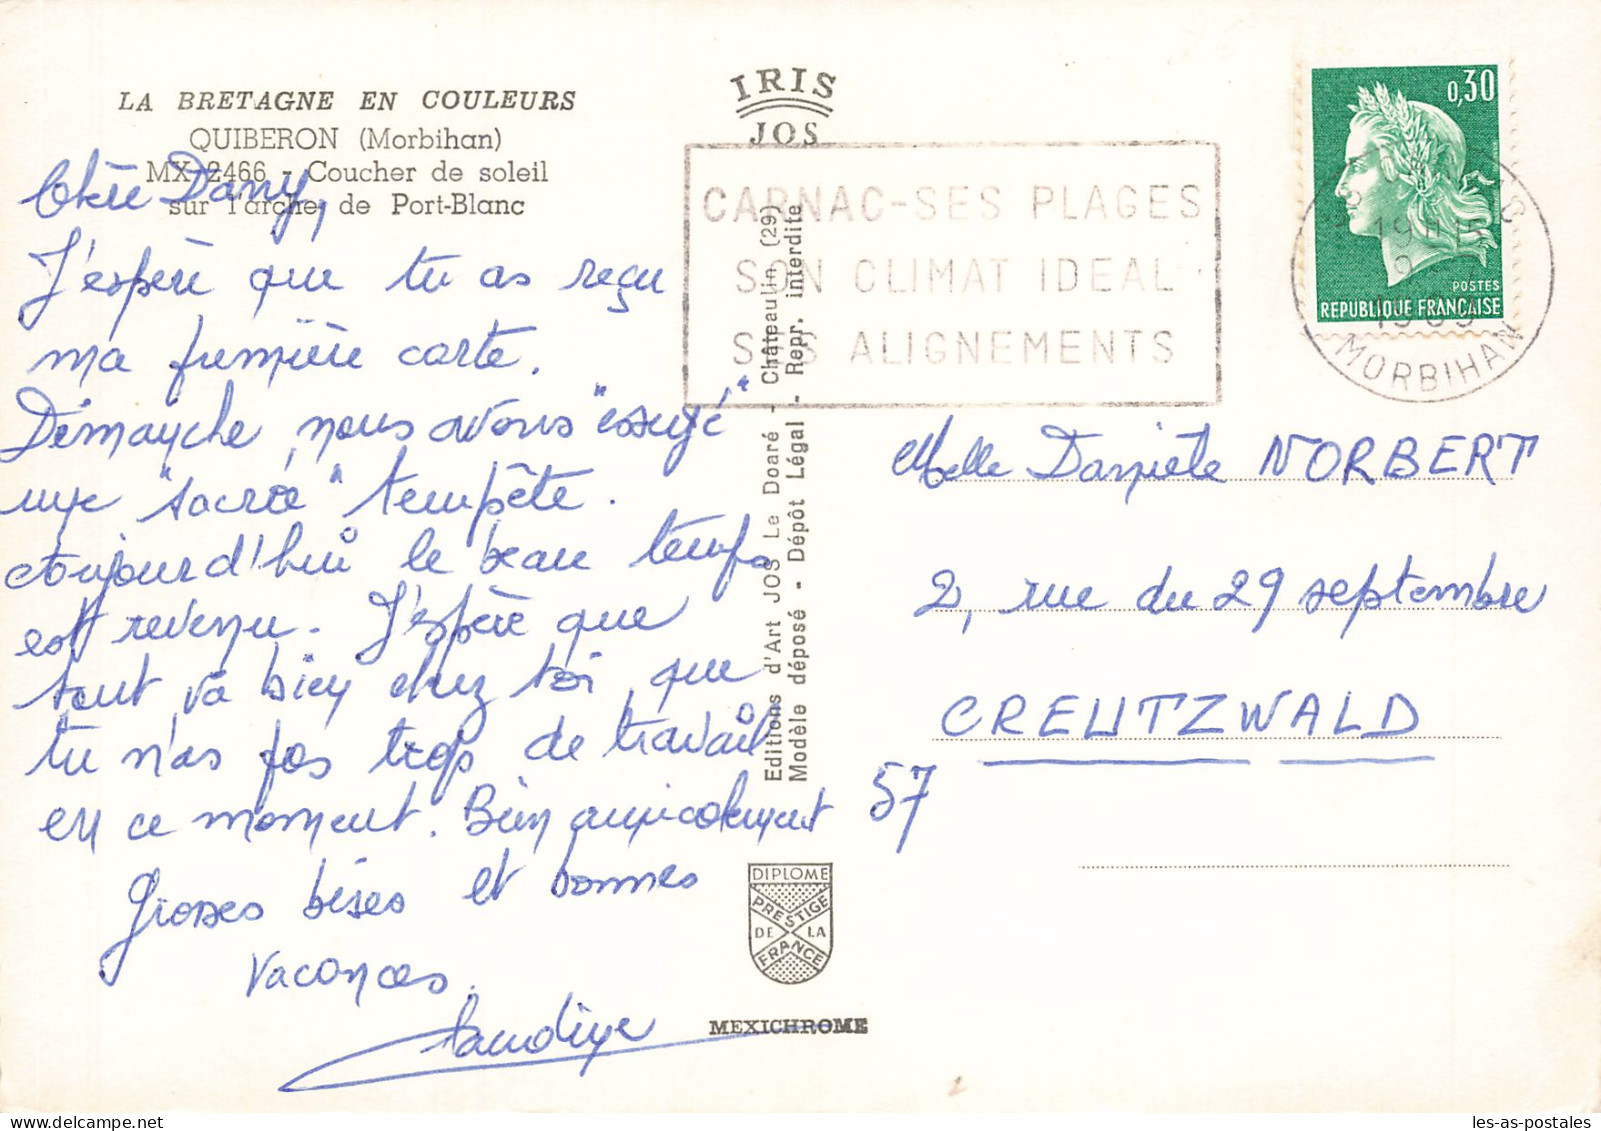 LA BRETAGNE EN COULEURS
QUIBERON (Morbihan)
MX 2466 - Coucher de soleil
sur l'arche de Port-Blanc
IRIS
JOS
CARNAC-SES PLAGES
SON CLIMAT IDEAL
SES ALIGNEMENTS
0,30
POSTES
REPUBLIQUE FRANÇAISE
19H15
9-7
1969
MORBIHAN
Chère Dany,
J'espère que tu as reçu
ma première carte.
Dimanche, nous avons "essuyé"
une "sacrée" tempête.
Aujourd'hui le beau temps
est revenu. J'espère que
tout va bien chez toi, que
tu n'as pas trop de travail
en ce moment. Bien amicalement
Grosses bises et bonnes
vacances.
Claudine
Editions d'Art JOS Le Doaré - Châteaulin (29)
Modèle déposé - Dépôt Légal - Repr. interdite
Melle Danièle NORBERT
2, rue du 29 septembre
CREUTZWALD
57
DIPLOME
PRESTIGE
DE LA
FRANCE
MEXICHROME
les-as-postales